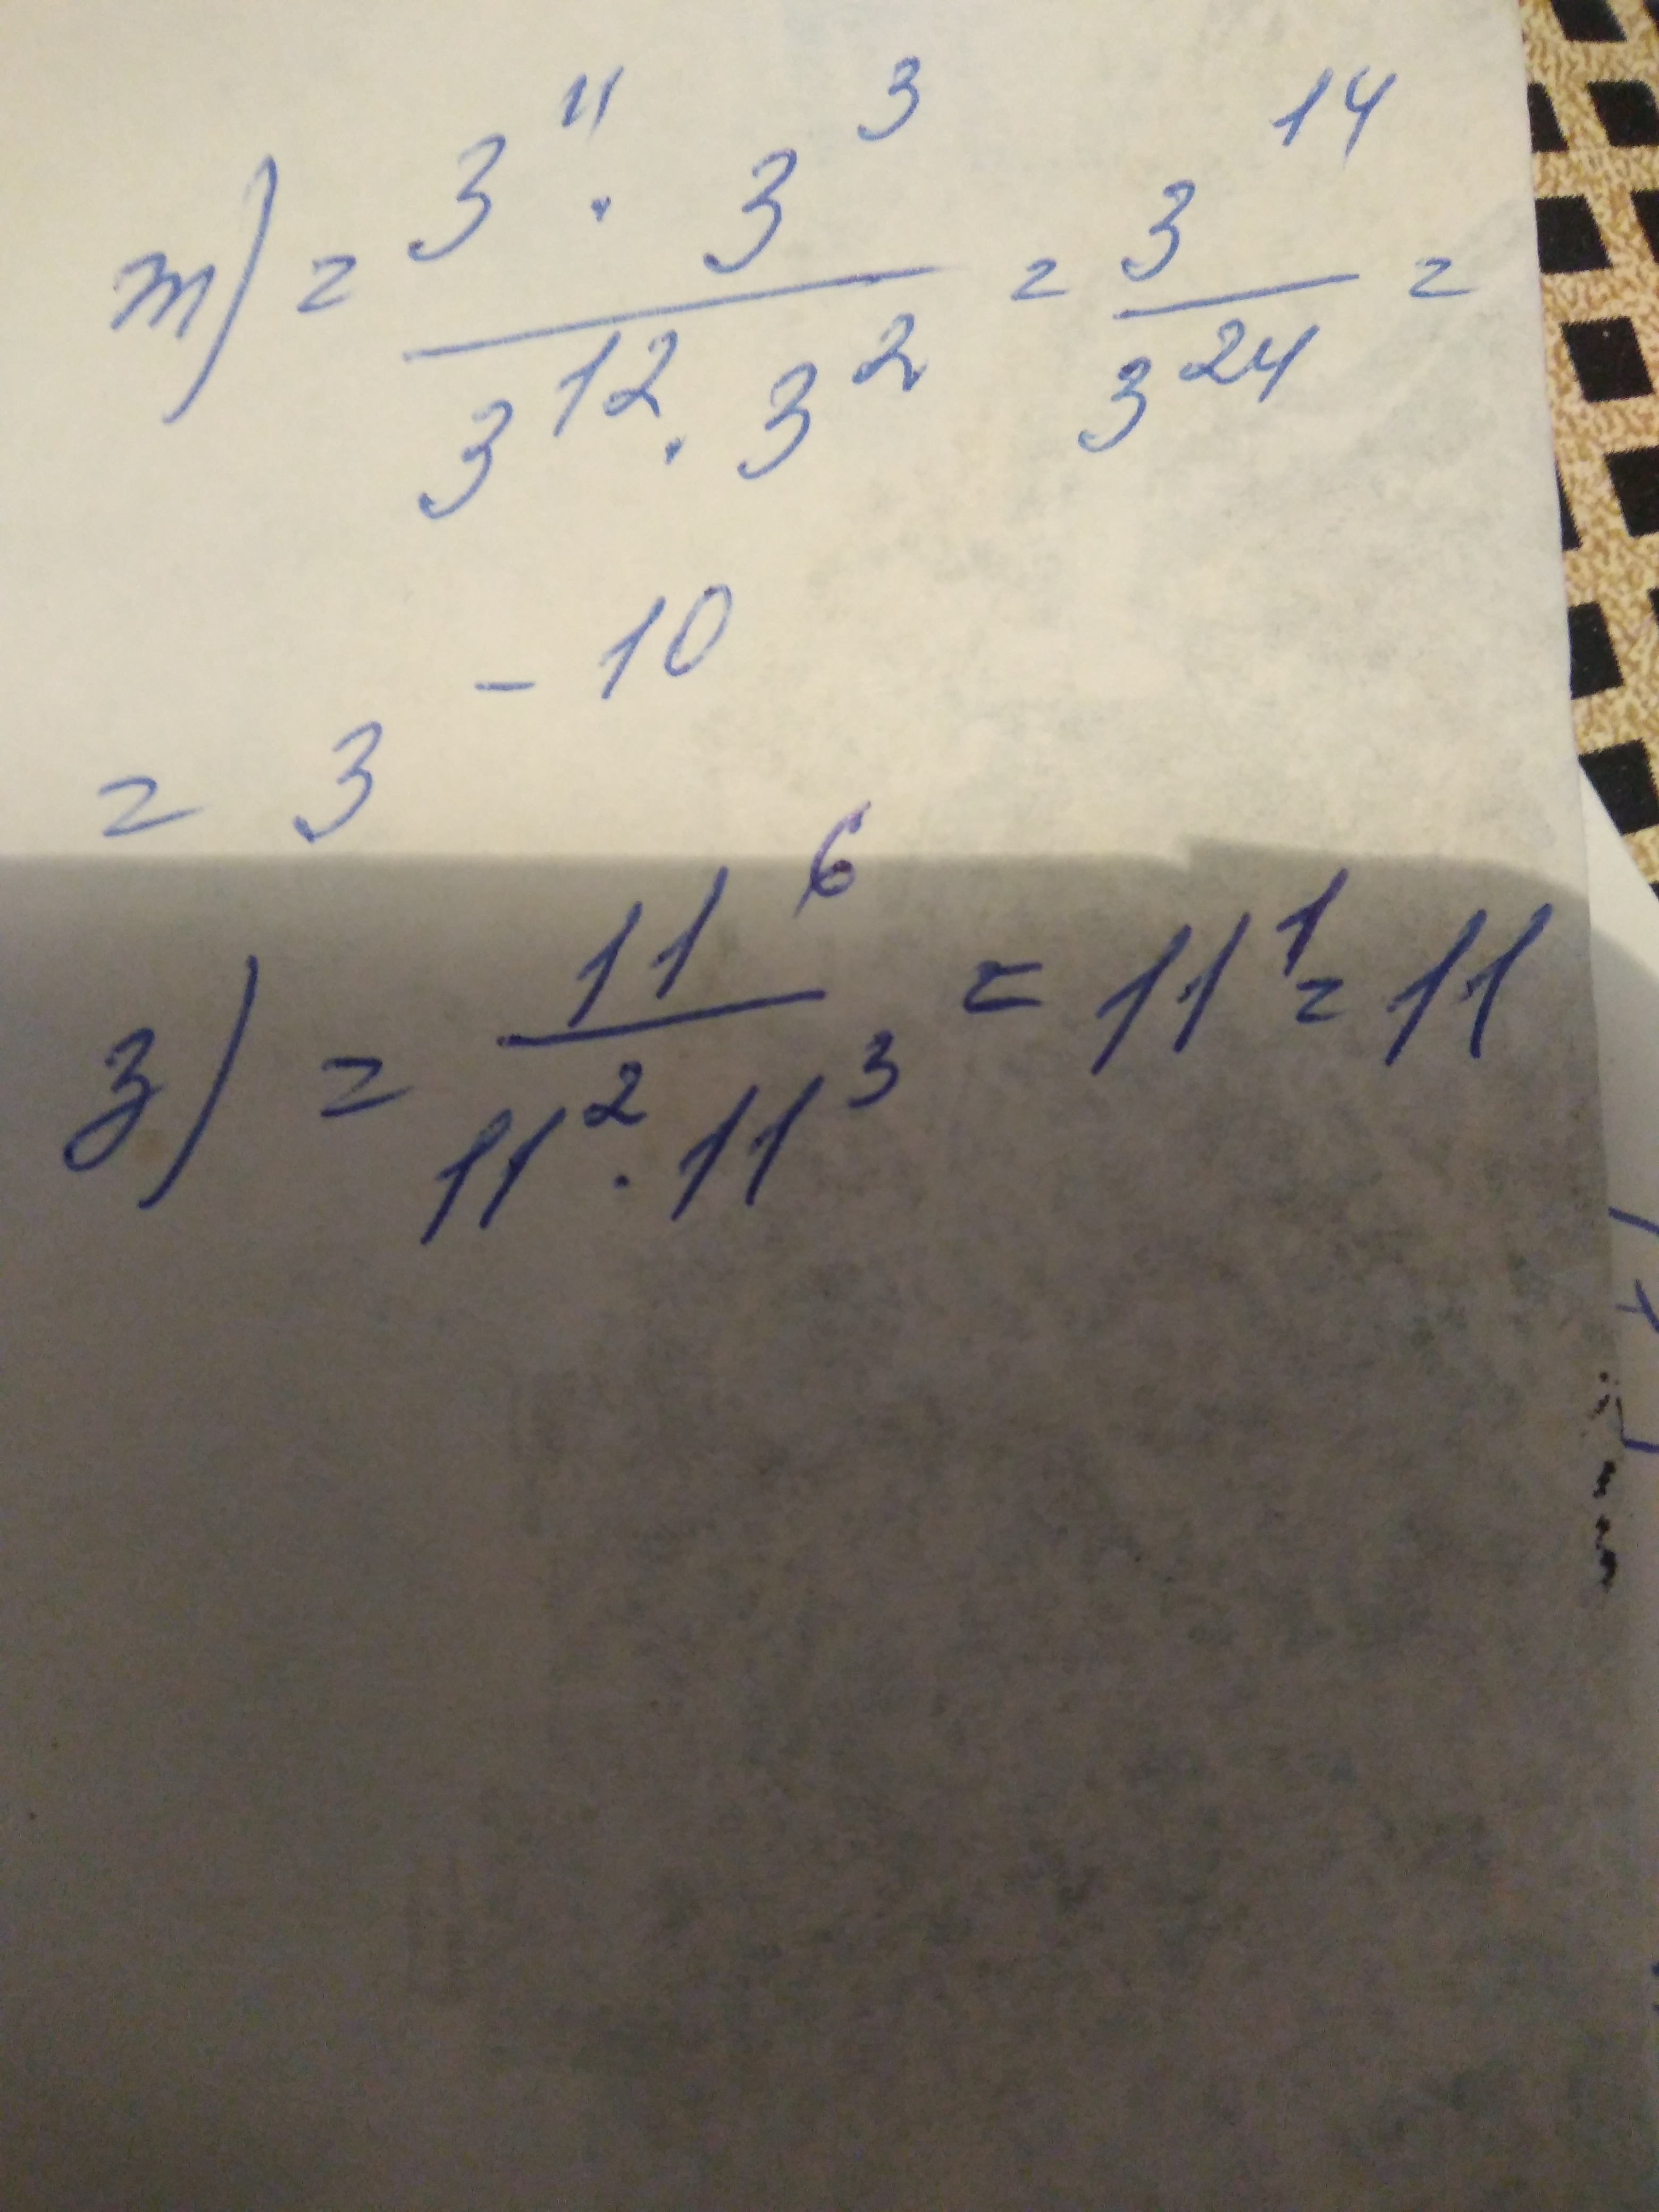 т) = 3^11 · 3^3 / 3^12 · 3^2 = 3^14 / 3^24 =
= 3^-10
з) = 11^6 / 11^2 · 11^3 = 11^1 = 11